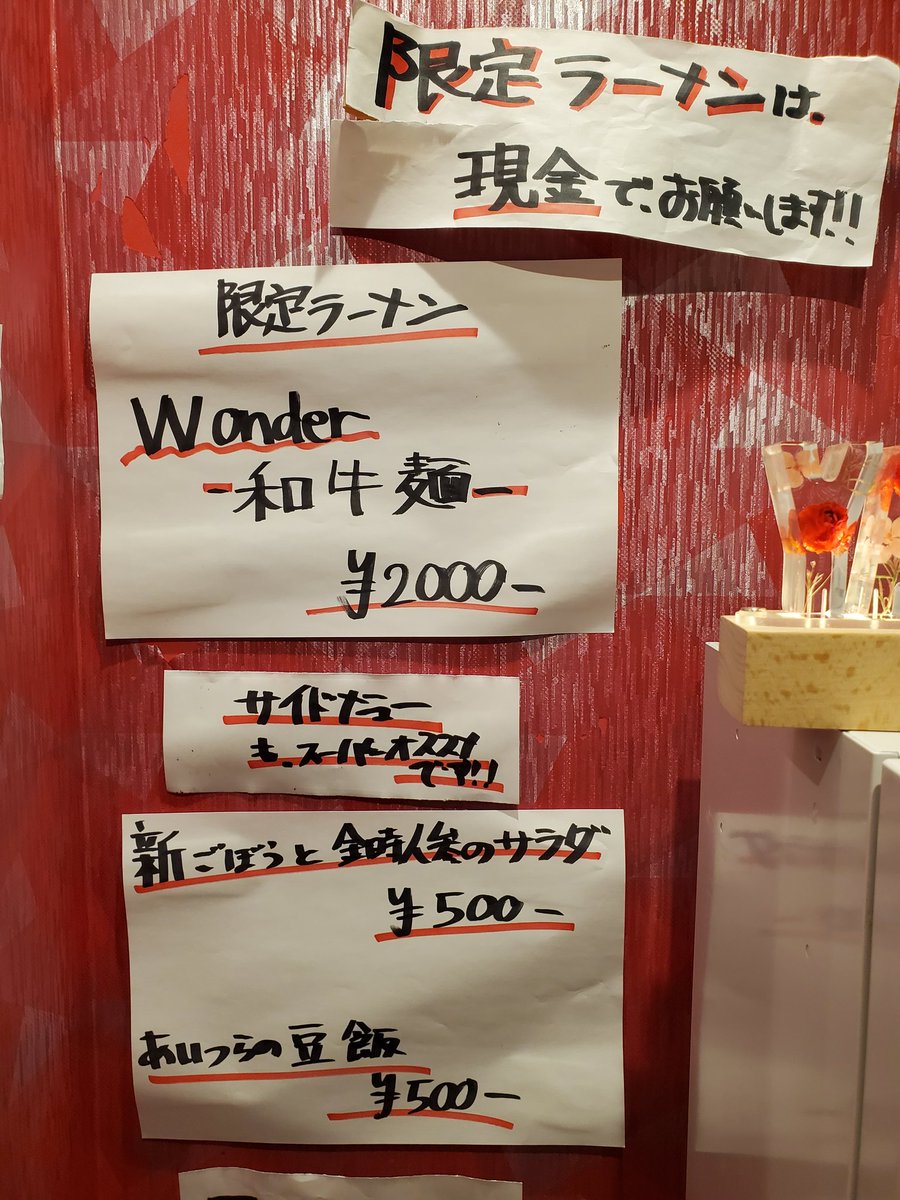 限定ラーメンは、
現金で、お願いします!!
限定ラーメン
Wonder
-和牛麺-
¥2000-
サイドメニュー
も、スーパーオススメ
です!!
新ごぼうと金時人参のサラダ
¥500-
あいつらの豆飯
¥500-